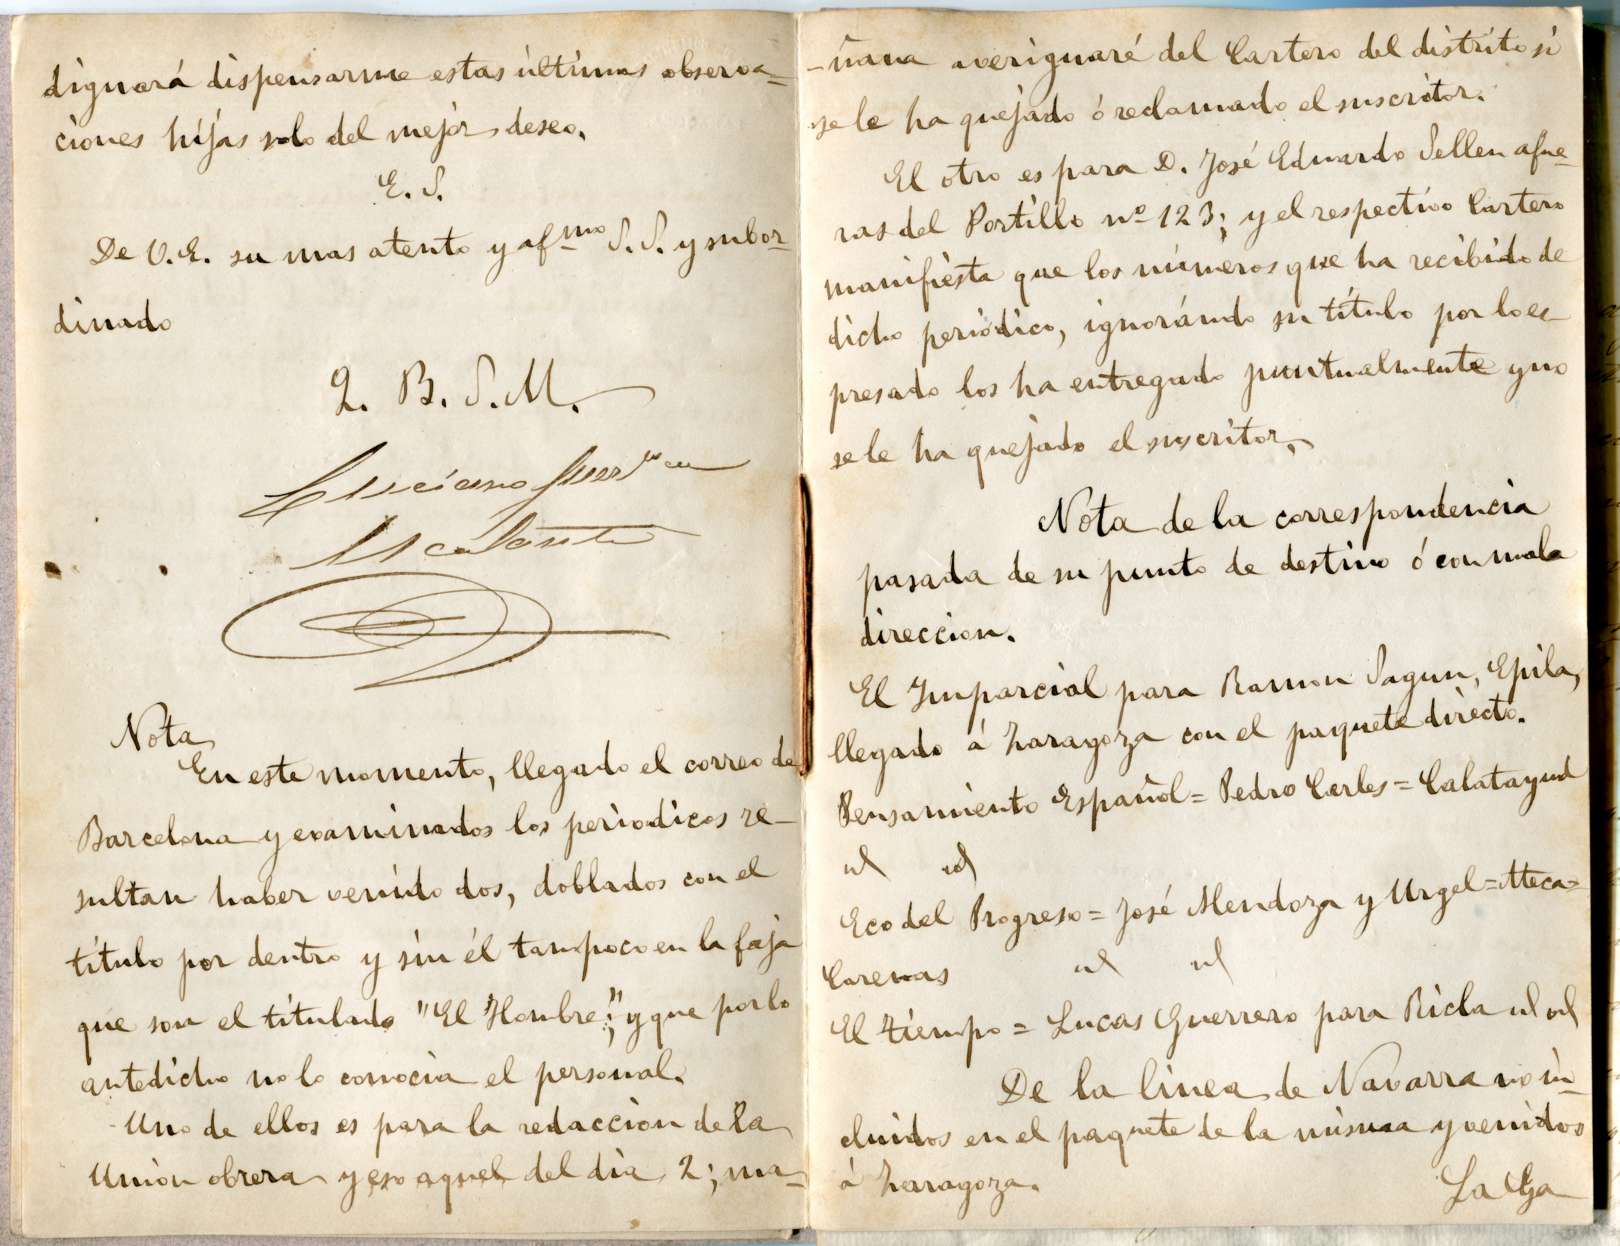 dignará dispensarme estas últimas observa=
ciones hijas solo del mejor deseo.
E. S.
De V.E. su mas atento y afmo S.S. y subor=
dinado
Q. B. S. M.
Luciano
Escalante
Nota
En este momento, llegado el correo de
Barcelona y examinados los periodicos re-
sultan haber venido dos, doblados con el
título por dentro y sin él tampoco en la faja
que son el titulado "El Hombre;" y que por lo
antedicho no lo conocia el personal.
Uno de ellos es para la redaccion de la
Union obrera y eso aquel del dia 2; ma=
-ñana averiguaré del Cartero del distrito si
se le ha quejado ó reclamado el suscritor.
El otro es para D. José Eduardo Sellen afue=
ras del Portillo nº 123; y el respectivo Cartero
manifiesta que los números que ha recibido de
dicho periódico, ignorándo su título por lo es-
presado los ha entregado puntualmente y no
se le ha quejado el suscritor.
Nota de la correspondencia
pasada de su punto de destino ó con mala
direccion.
El Imparcial para Ramon Sagun, Epila,
llegado á Zaragoza con el paquete directo.
Pensamiento Español = Pedro Carles = Calatayud
id id
Eco del Progreso = José Mendoza y Urgel = Ateca =
Carenas id id
El tiempo = Lucas Guerrero para Ricla id id
De la linea de Navarra no in=
cluidos en el paquete de la misma y venidos
á Zaragoza.
La Ga